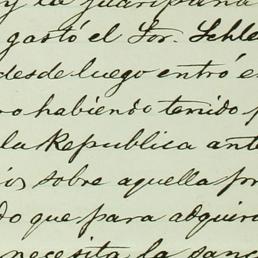 y la
gastó el Sor. Schle
desde luego entró e
ro habiendo tenido p
la Republica ante
ios sobre aquella pr
do que para adquirir
necesita la sanc